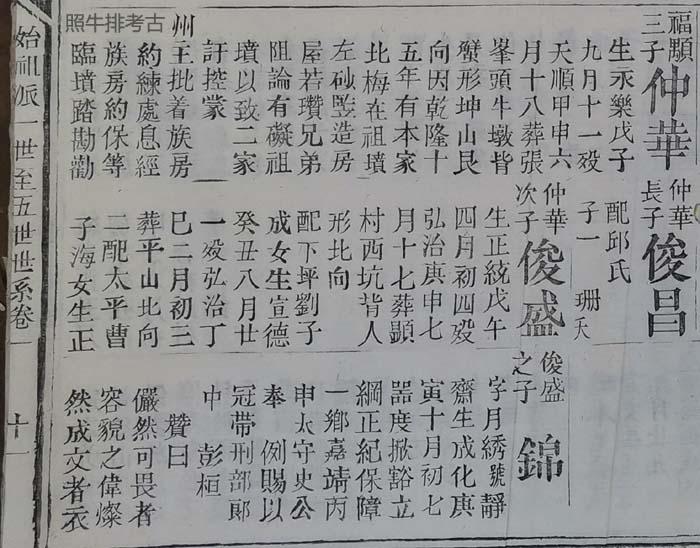 照牛排考古
福顒三子 仲華
生永樂戊子
九月十一殁
天順甲申六
月十八葬張
峯頭牛墩皆
蟹形坤山艮
向因乾隆十
五年有本家
北梅在祖墳
左砂竪造房
屋若瓚兄弟
阻論有礙祖
墳以致二家
訐控蒙
州主批着族房
約練處息經
族房約保等
臨墳踏勘勸
仲華長子 俊昌
配邱氏
子一 珊夭
仲華次子 俊盛
生正統戊午
四月初四殁
弘治庚申七
月十七葬顯
村西坑背人
形北向
配下坪劉子
成女生宣德
癸丑八月廿
一殁弘治丁
巳二月初三
葬平山北向
二配太平曹
子海女生正
俊盛之子 錦
字月綉號靜
齋生成化庚
寅十月初七
器度掀豁立
綱正紀保障
一鄉嘉靖丙
申太守史公
奉 例賜以
冠帶刑部郎
中 彭桓
贊曰
儼然可畏者
容貌之偉燦
然成文者衣
始祖派一世至五世世系卷一 十一